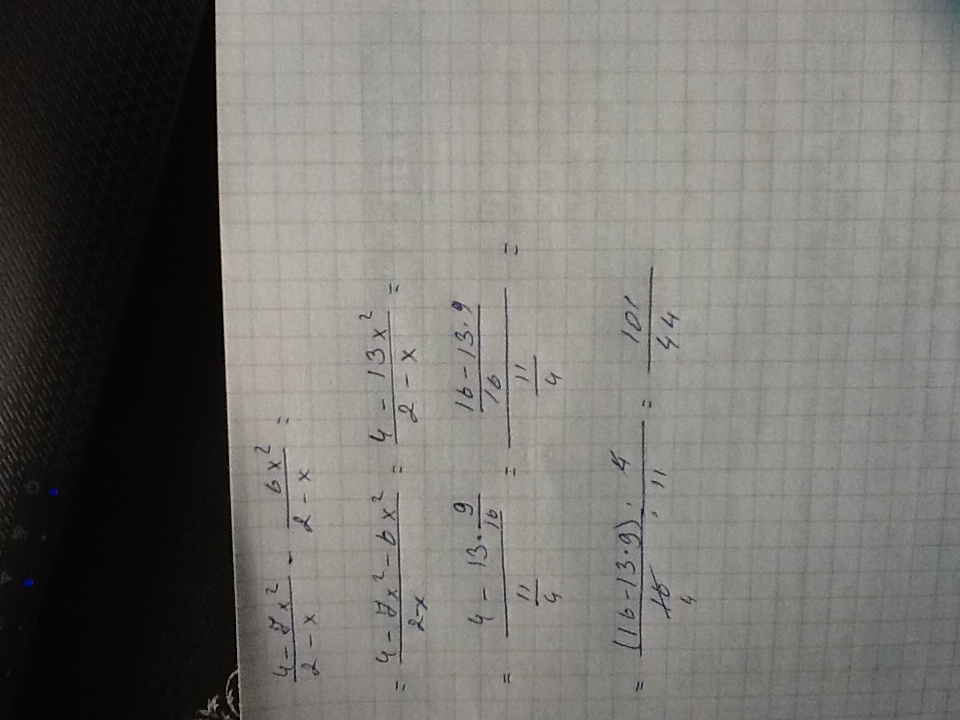 (4-7x²)/(2-x) - 6x²/(2-x) =
= (4-7x²-6x²)/(2-x) = (4-13x²)/(2-x) =
= (4-13·9/16)/(11/4) = ((16-13·9)/16)/(11/4) =
= ((16-13·9)·4)/(16·11) 4 = 101/44